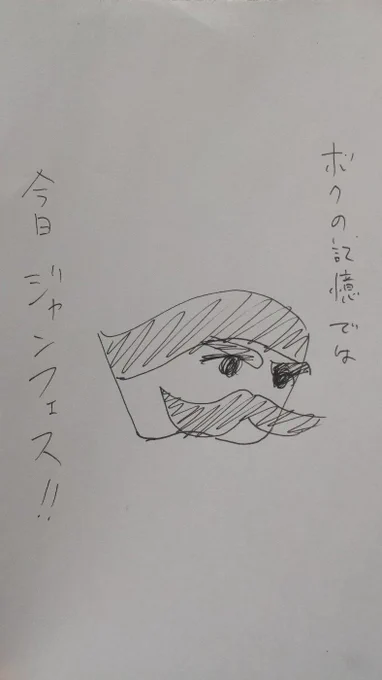 ボクの記憶では
今日 ジャンフェス!!